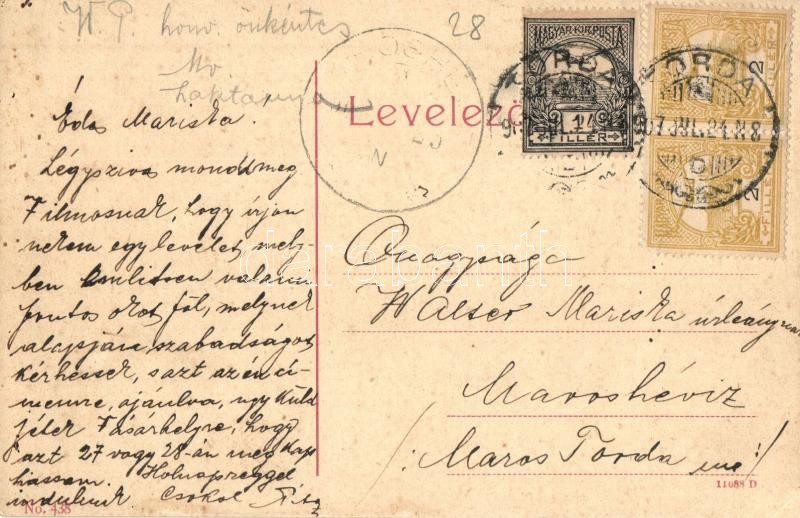 W. P. honv. önkéntes
28
Mv
Laktanya
Levelező
MAGYAR KIR. POSTA
1
FILLÉR
2
FILLÉR
2
FILLÉR
TORDA
TORDA
907 JUL. 24. N 8
Édes Mariska.
Légyszives mondd meg
Vilmosnak, hogy irjon
nekem egy levelet, mely-
ben említsen valami
fontos okot föl, melynek
alapján szabadságot
kérhessek, s azt az én cí-
memre, ajánlva, úgy küld-
jétek Vásárhelyre, hogy
azt 27 vagy 28-án meg kap
hassam. Holnapreggel
indulunk Csókol
Őnagysága
Walser Mariska úrleánynak
Maroshéviz
/: Maros Torda me /
No. 438
11088 D